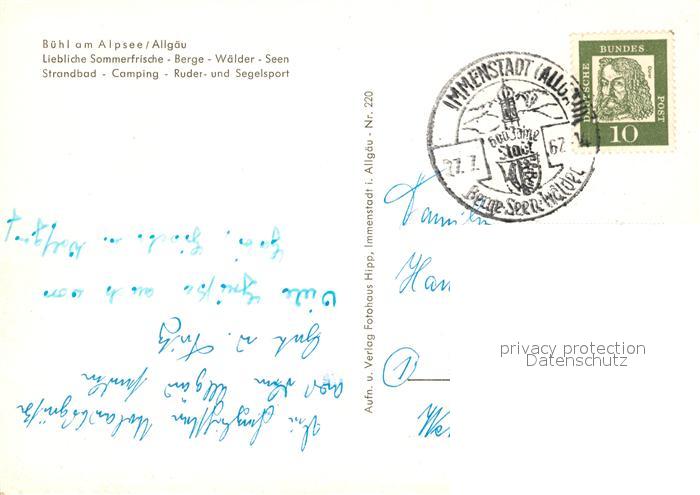 Bühl am Alpsee/Allgäu
Liebliche Sommerfrische - Berge - Wälder - Seen
Strandbad - Camping - Ruder- und Segelsport
Aufn. u. Verlag Fotohaus Hipp, Immenstadt i. Allgäu - Nr. 220
IMMENSTADT (ALLGÄU)
600 Jahre
Stadt
27.7. 62
Berge·Seen·Wälder
DEUTSCHE BUNDES POST
10
Familie
Han
privacy protection
Datenschutz
Urlaubsgrüße
aus dem Allgäu
u. Fritz
Viele Grüße auch von